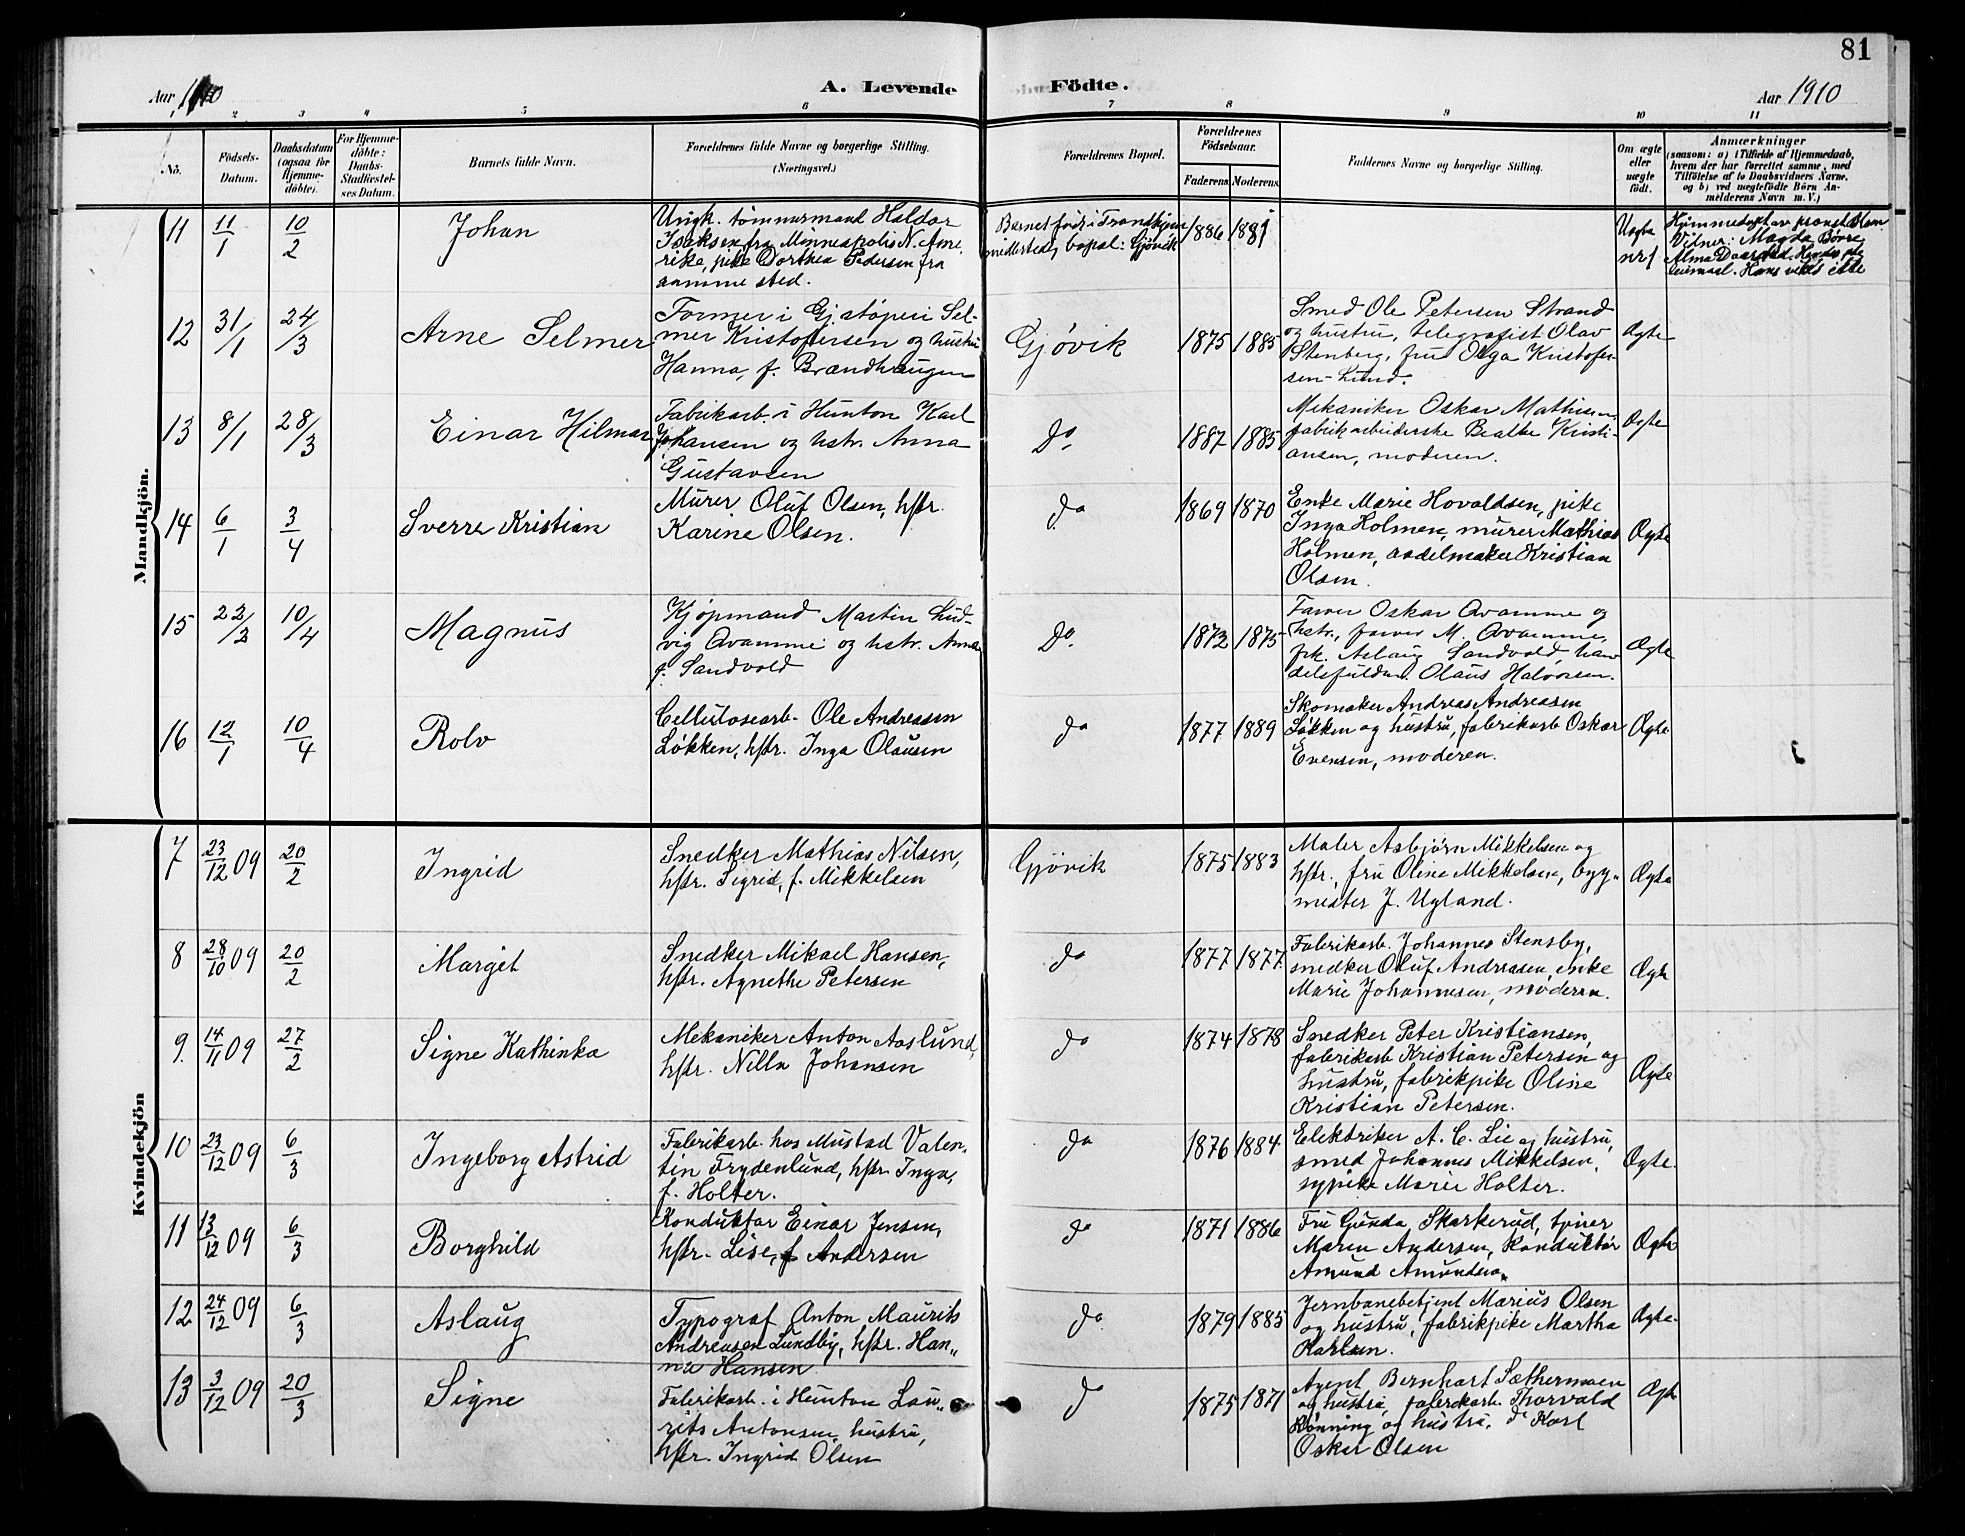 81
Aar 1910
A. Levende Födte.
Aar 1910
1 2 3 4 5 6 7 8 9 10 11
No.
Födsels-
Datum.
Daabsdatum
(ogsaa for
Hjemme-
döbte).
For Hjemme-
döbte:
Daabs-
Stadfæstel-
ses Datum.
Barnets fulde Navn.
Forældrenes fulde Navne og borgerlige Stilling.
(Næringsvei.)
Forældrenes Bopæl.
Forældrenes
Födselsaar.
Faderens. Moderens.
Faddernes Navne og borgerlige Stilling.
Om ægte
eller
uægte
født.
Anmærkninger
(saasom: a) i Tilfælde af Hjemmedaab,
hvem der har forrettet samme, med
Tilföielse af to Daabsvidners Navne,
og b) ved uægtefödte Börn An-
melderens Navn m. V.)
Mandkjön.
11
11/1
10/2
Johan
Ungk. tömmermand Haldor
Isaksen fra Minneapolis N. Ame-
rika, pike Dorthea Pedersen fra
samme sted.
Barnet född i Trondhjem
bopæl: Gjøvik
1886 1881
Uegte
nr 1
Hjemmedöpt av
Vitner: Magda Börre
Alma
12
31/1
24/3
Arne Selmer
Former i Gj. støperi Sel-
mer Kristofersen og hustru
Hanna, f. Brændhaugen
Gjøvik
1875 1885
Smed Ole Petersen Strand
og hustru, telegrafist Olav
Stenberg, fru Olga Kristofer-
sen-Lund.
Ægte
13
8/1
28/3
Einar Hilmar
Fabrikarb. i Hunton Karl
Johansen og hstr. Anna
Gustavsen
Do.
1887 1885
Mekaniker Oskar Mathisen,
fabrikarbeiderske Beathe Kristi-
ansen, moderen.
Ægte
14
6/1
3/4
Sverre Kristian
Murer Oluf Olsen, hstr.
Karine Olsen.
do
1869 1870
Enke Marie Hovaldsen, pike
Inga Holmen, murer Mathias
Holmen, sadelmaker Kristian
Olsen.
Ægte
15
22/2
10/4
Magnus
Kjøpmand Martin Lud-
vig Avamme og hstr. Anna
f. Sandvold
Do.
1872 1875
Farver Oskar Avamme og
hstr., farver M. Avamme,
frk. Aslaug Sandvold, han-
delsfuldm. Olaus Halvorsen.
Ægte
16
12/1
10/4
Rolv
Cellulosearb. Ole Andreasen
Løkken, hstr. Inga Olausen
do
1877 1889
Skomaker Andreas Andreasen
Løkken og hustru, fabrikarb Oskar
Evensen, moderen.
Ægte
Kvindekjön
7
23/12 09
20/2
Ingrid
Snedker Mathias Nilsen,
hstr. Sigrid, f. Mikkelsen
Gjøvik
1875 1883
Maler Asbjørn Mikkelsen og
hstr., fru Oline Mikkelsen, byg-
mester J. Ugland.
Ægte
8
28/10 09
20/2
Margit
Snedker Mikael Hansen,
hstr. Agnethe Petersen
do
1877 1877
Fabrikarb. Johannes Stensby,
snedker Oluf Andreasen, enke
Marie Johannesen, moderen.
Ægte
9.
14/11 09
27/2
Signe Kathinka
Mekaniker Anton Aaslund,
hstr. Nilla Johansen
do
1874 1878
Snedker Peter Kristiansen,
fabrikarb Kristian Petersen og
hustru, fabrikpike Oline
Kristian Petersen.
Ægte
10
23/12 09
6/3
Ingeborg Astrid
Fabrikarb. hos Mustad Valen-
tin Frydenlund, hstr. Inga,
f. Holter.
do
1876 1884
Elektriker A. C. Lie og hustru,
smed Johannes Mikkelsen,
sypike Marie Holter.
Ægte.
11
13/12 09
6/3
Borghild
Konduktør Einar Jensen,
hstr. Lise, f Andersen
do
1871 1886
Fru Gunda Skarkerud,
Maren Andersen, Konduktør
Amund Amundsen.
Ægte
12
24/12 09
6/3
Aslaug
Typograf Anton Maurits
Andreasen Lundby, hstr. Han-
na Hansen
do
1879 1885
Jernbanebetjent Marius Olsen
og hustru, fabrikpike Martha
Karlsen.
Ægte
13
3/12 09
20/3
Signe
Fabrikarb. i Hunton Lau-
rits Antonsen, hustru,
hstr. Ingrid Olsen
d
1875 1871
Agent Bernhart Sæthermoen
og hustru, fabrikarb Thorvald
Rønning og hustru, do Karl
Oskar Olsen
Ægte